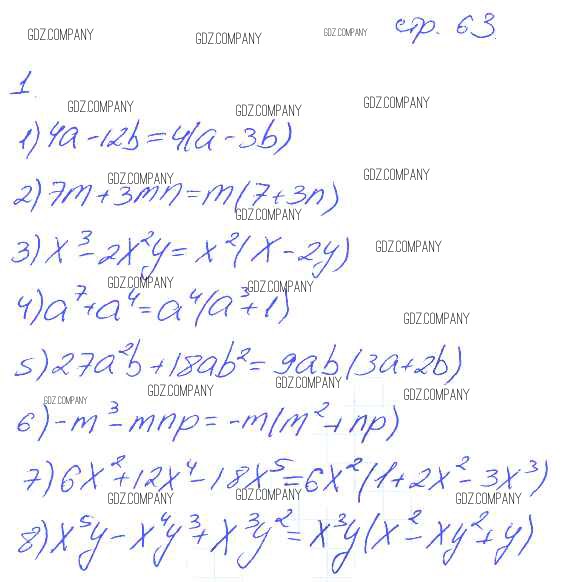 GDZ.COMPANY GDZ.COMPANY GDZ.COMPANY стр. 63
1.
GDZ.COMPANY GDZ.COMPANY GDZ.COMPANY
1) 4a - 12b = 4(a - 3b)
GDZ.COMPANY GDZ.COMPANY
2) 7m + 3mn = m(7 + 3n)
GDZ.COMPANY
3) x³ - 2x²y = x²(x - 2y) GDZ.COMPANY
GDZ.COMPANY GDZ.COMPANY
4) a⁷ + a⁴ = a⁴(a³ + 1) GDZ.COMPANY
5) 27a²b + 18ab² = 9ab(3a + 2b)
GDZ.COMPANY GDZ.COMPANY GDZ.COMPANY
GDZ.COMPANY
6) -m³ - mnp = -m(m² + np)
7) 6x² + 12x⁴ - 18x⁵ = 6x²(1 + 2x² - 3x³)
GDZ.COMPANY GDZ.COMPANY GDZ.COMPANY
8) x⁵y - x⁴y³ + x³y² = x³y(x² - xy² + y)